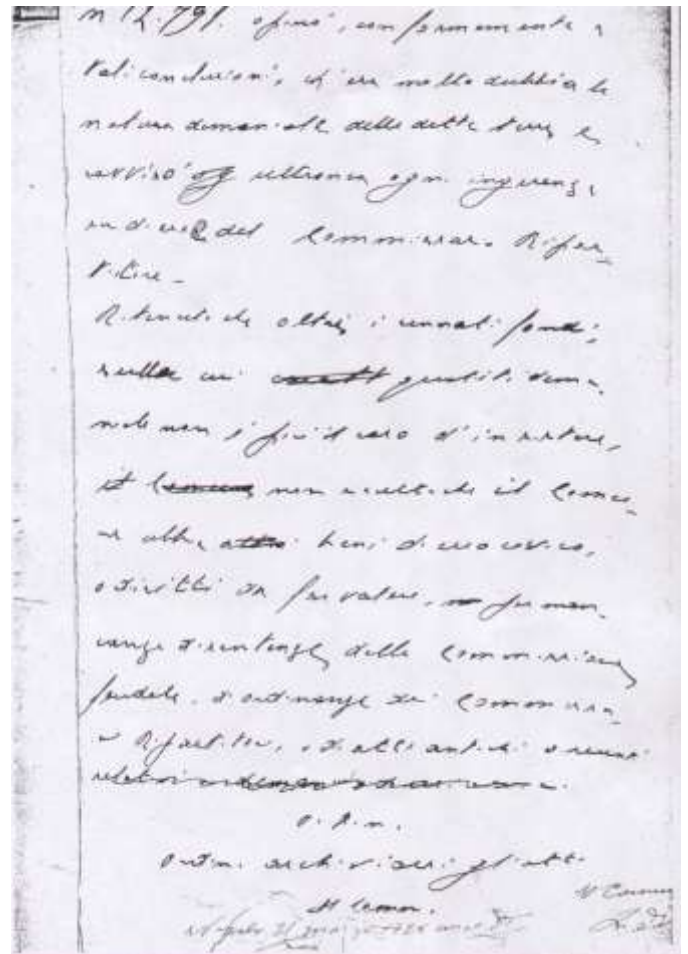 n. 12.791. opinò, conformemente a
tali conclusioni, ch'era molto dubbia la
natura demaniale delle dette terre e
ravvisò ultronea ogni ingerenza
del Commissario Ripar-
titore.
Ritenuto che oltre i cennati fondi,
sulla cui qualità dema-
niale non è più il caso d'insistere,
non risulta che il Comu-
ne abbia beni di uso civico,
o diritti da far valere, per man-
canza di sentenze della Commissione
feudale, d'ordinanze dei Commissa-
ri Ripartitori, o di atti antichi o recenti
relativi
P. Q. M.
Ordina archiviarsi gli atti
Il Comm.
Napoli 31 marzo
Il Comm